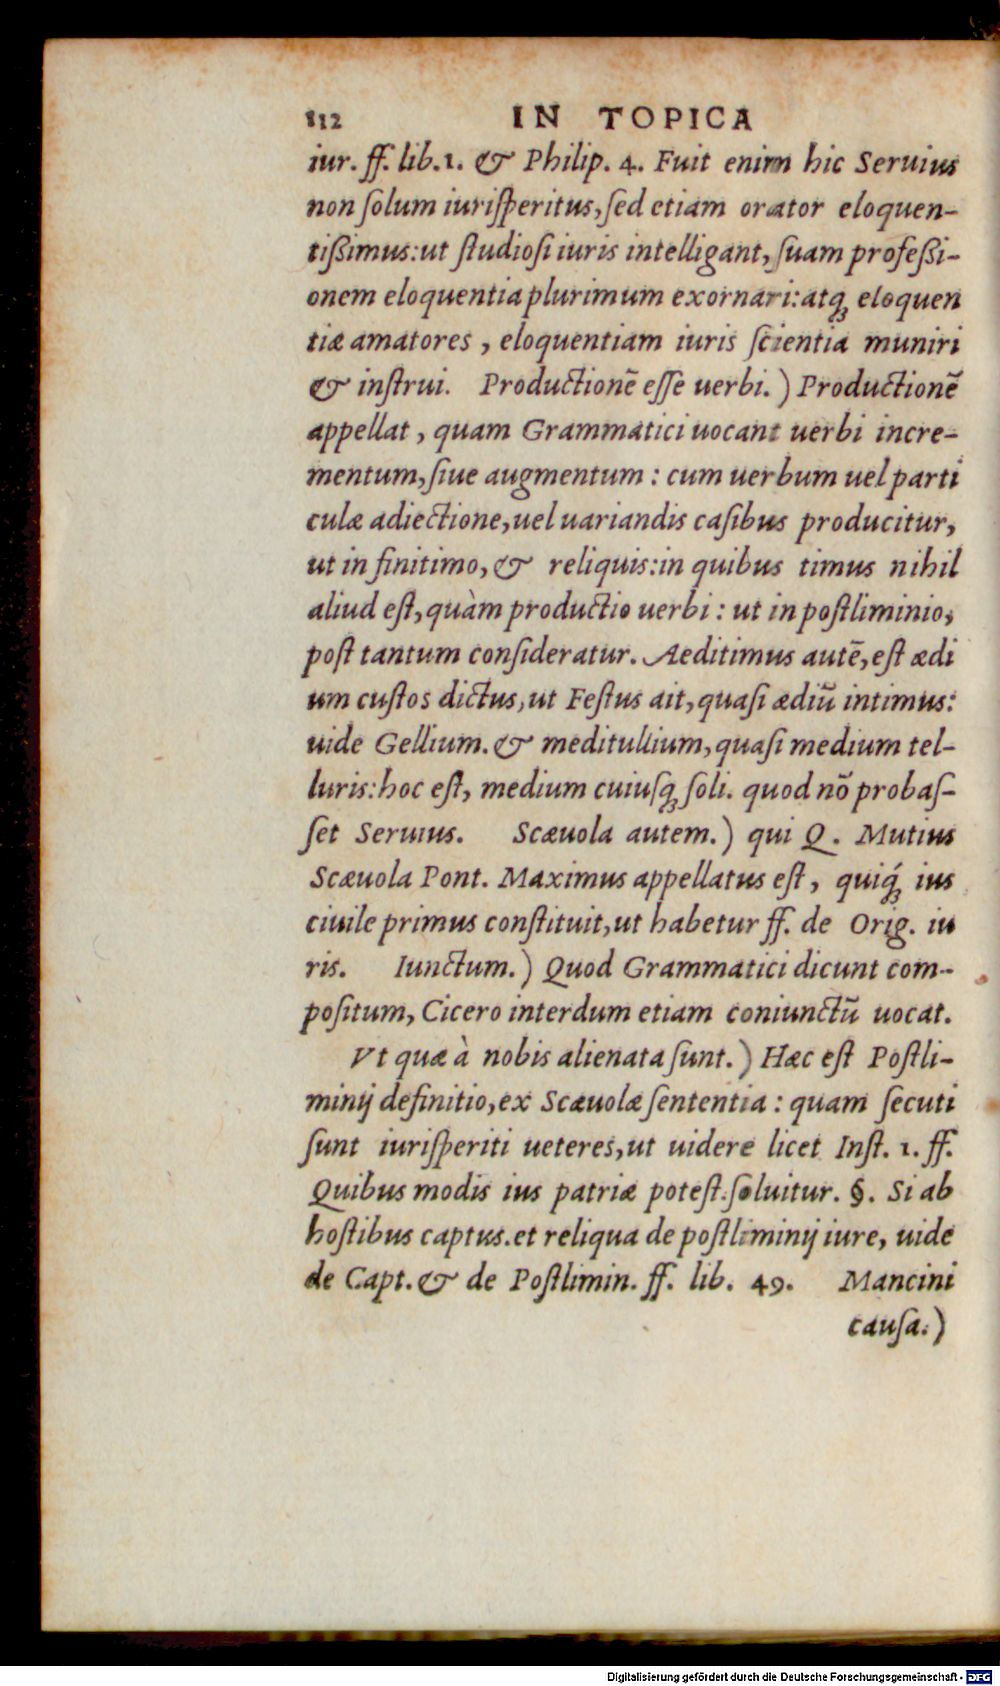 112 IN TOPICA
iur. ff. lib. 1. & Philip. 4. Fuit enim hic Seruius
non ſolum iuriſperitus, ſed etiam orator eloquen-
tißimus: ut ſtudioſi iuris intelligant, ſuam profeßi-
onem eloquentia plurimum exornari: atq; eloquen
tiæ amatores, eloquentiam iuris ſcientia muniri
& inſtrui. Productionē eſſe uerbi.) Productionē
appellat, quam Grammatici uocant uerbi incre-
mentum, ſiue augmentum: cum uerbum uel parti
culæ adiectione, uel uariandis caſibus producitur,
ut in finitimo, & reliquis: in quibus timus nihil
aliud eſt, quàm productio uerbi: ut in poſtliminio,
poſt tantum conſideratur. Aeditimus autē, eſt ædi
um cuſtos dictus, ut Feſtus ait, quaſi ædiū intimus:
uide Gellium. & meditullium, quaſi medium tel-
luris: hoc eſt, medium cuiuſq; ſoli. quod nō probaſ-
ſet Seruius. Scæuola autem.) qui Q. Mutius
Scæuola Pont. Maximus appellatus eſt, quiq́; ius
ciuile primus conſtituit, ut habetur ff. de Orig. iu
ris. Iunctum.) Quod Grammatici dicunt com-
poſitum, Cicero interdum etiam coniunctū uocat.
Vt quæ à nobis alienata ſunt.) Hæc eſt Poſtli-
minij definitio, ex Scæuolæ ſententia: quam ſecuti
ſunt iuriſperiti ueteres, ut uidere licet Inſt. 1. ff.
Quibus modis ius patriæ poteſt. ſoluitur. §. Si ab
hoſtibus captus. et reliqua de poſtliminij iure, uide
de Capt. & de Poſtlimin. ff. lib. 49. Mancini
cauſa.)
Digitalisierung gefördert durch die Deutsche Forschungsgemeinschaft - DFG